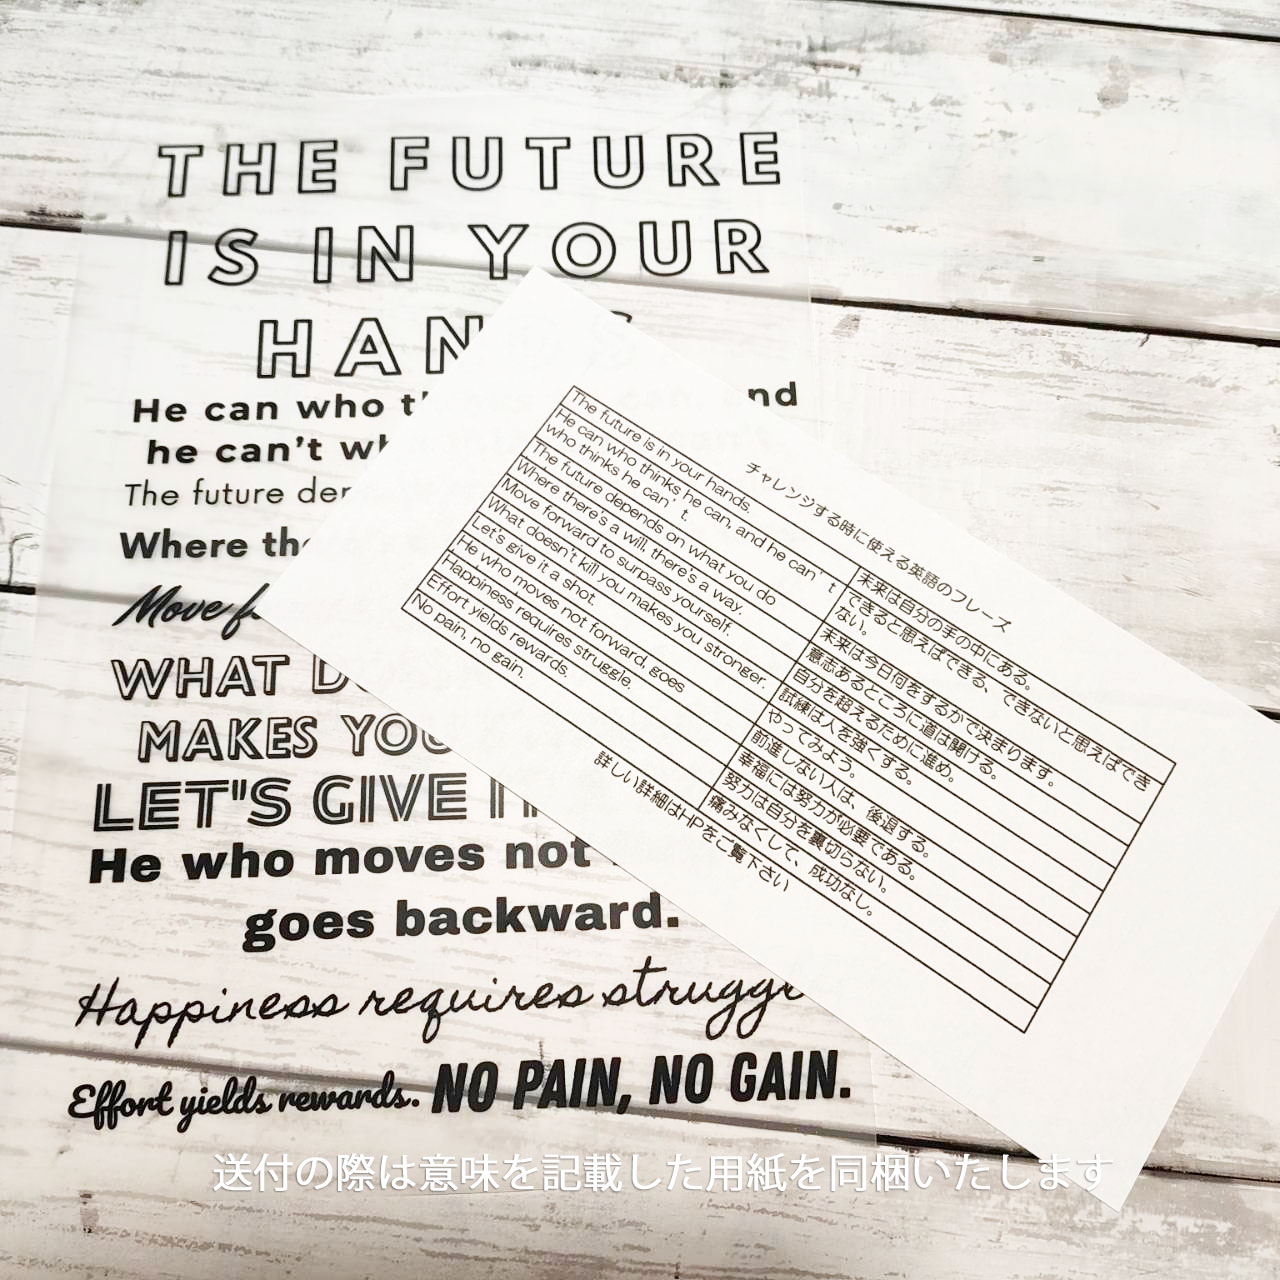 THE FUTURE
IS IN YOUR
He can who
he can't
The future
Where
Move
WHAT
MAKES YOU
LET'S GIVE IT
He who moves not
goes backward.
Happiness requires
Effort yields rewards. NO PAIN, NO GAIN.
チャレンジする時に使える英語のフレーズ
The future is in your hands.
未来は自分の手の中にある。
He can who thinks he can, and he can't
who thinks he can't.
できると思えばできる、できないと思えばでき
ない。
The future depends on what you do
未来は今日何をするかで決まります。
Where there's a will, there's a way.
意志あるところに道は開ける。
Move forward to surpass yourself.
自分を超えるために進め。
What doesn't kill you makes you stronger.
試練は人を強くする。
Let's give it a shot.
やってみよう。
He who moves not forward, goes
前進しない人は、後退する。
Happiness requires struggle.
幸福には努力が必要である。
Effort yields rewards.
努力は自分を裏切らない。
No pain, no gain.
痛みなくして、成功なし。
詳しい詳細はHPをご覧下さい
送付の際は意味を記載した用紙を同梱いたします